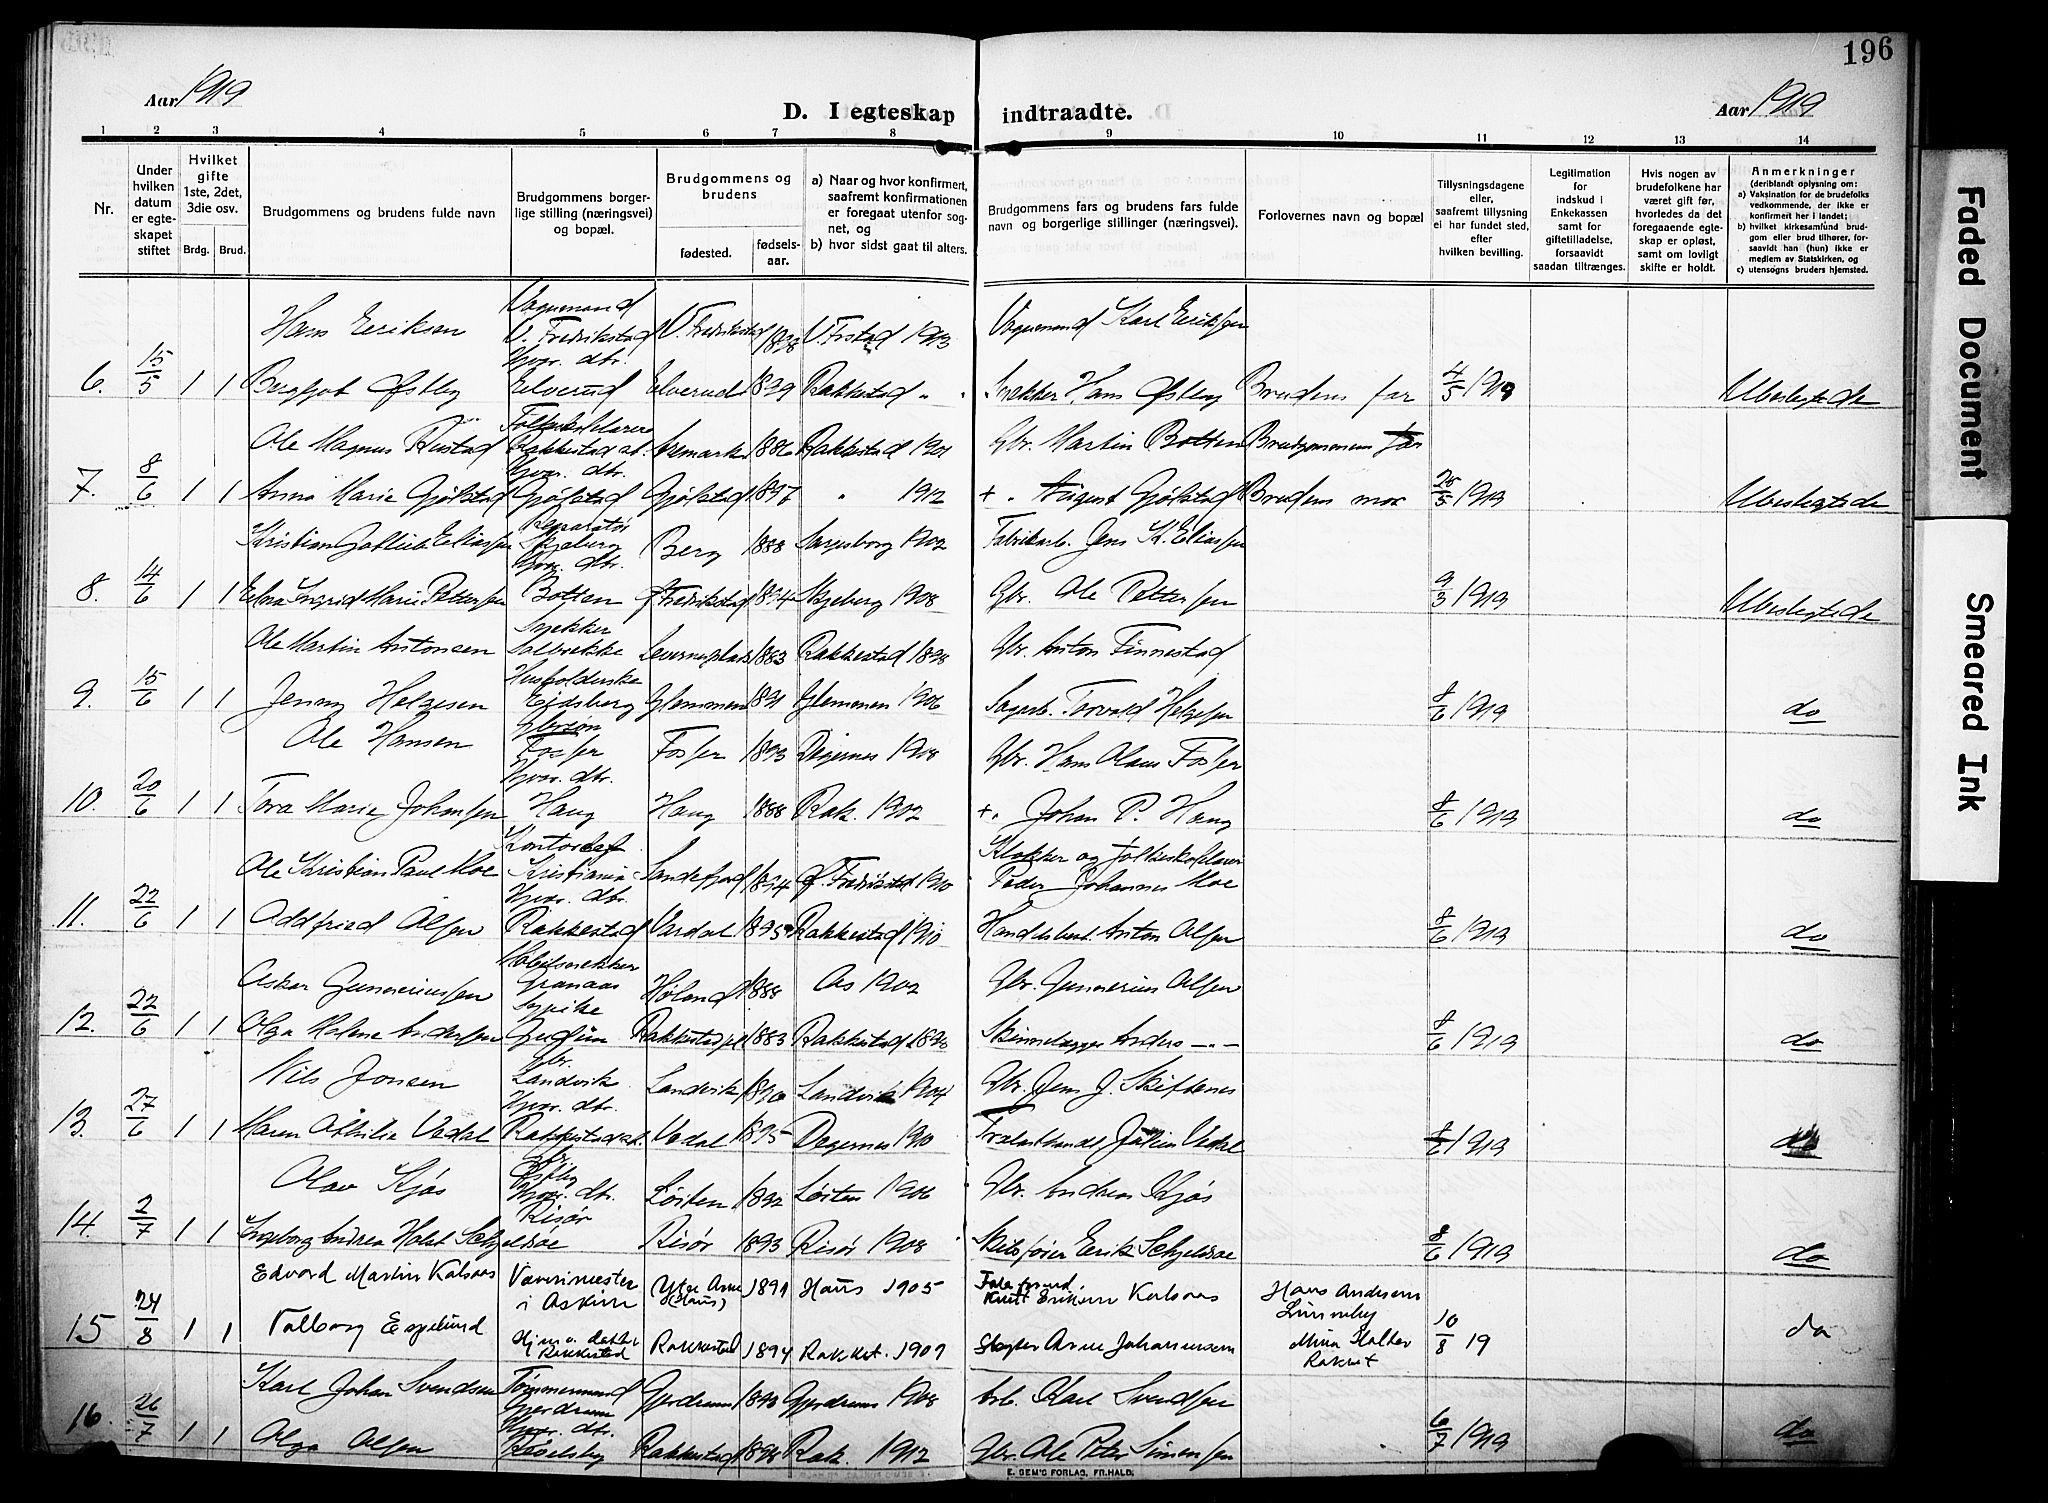 196
Aar 1919
D. I egteskap indtraadte.
Aar 1919
1 2 3 4 5 6 7 8 9 10 11 12 13 14
Nr.
Under hvilken datum er egteskapet stiftet
Hvilket gifte 1ste, 2det, 3die osv.
Brdg. Brud.
Brudgommens og brudens fulde navn
Brudgommens borgerlige stilling (næringsvei) og bopæl.
Brudgommens og brudens
fødested. fødselsaar.
a) Naar og hvor konfirmert, saafremt konfirmationen er foregaat utenfor sognet, og
b) hvor sidst gaat til alters.
Brudgommens fars og brudens fars fulde navn og borgerlige stillinger (næringsvei).
Forlovernes navn og bopæl
Tillysningsdagene eller, saafremt tillysning ei har fundet sted, efter hvilken bevilling.
Legitimation for indskud i Enkekassen samt for giftetilladelse, forsaavidt saadan tiltrænges.
Hvis nogen av brudefolkene har været gift før, hvorledes da det foregaaende egteskap er opløst, samt om lovligt skifte er holdt.
Anmerkninger
(deriblandt oplysning om:
a) Vaksination for de brudefolks vedkommende, der ikke er konfirmert her i landet;
b) hvilket kirkesamfund brudgom eller brud tilhører, forsaavidt han (hun) ikke er medlem av Statskirken, og
c) utensogns bruders hjemsted.
Hans Eriksen V. Fredrikstad V. Fredrikstad 1898 V. Frstad 1913 Vognmand Karl Eriksen
6. 15/5 1 1 Bergljot Østby Elverud Elverud 1899 Rakkestad " Snekker Hans Østby Brudens far 4/5 1919 Ubeslegtede
Ole Magnus Rustad Rakkestad Aremark 1886 Rakkestad 1901 Gbr. Martin Botten Brudgommens far
7. 8/6 1 1 Anna Marie Gjølstad Gjølstad Gjølstad 1897 " 1912 + August Gjølstad Brudens mor 25/5 1919 Ubeslegtede
Kristian Gotlieb Eliassen Reparatør Skjeberg Berg 1888 Sarpsborg 1902 Fabrikarb. Jens K. Eliassen
8. 14/6 1 1 Ingrid Marie Pettersen Hjvær. dtr. Botten Fredrikstad 1894 Skjeberg 1908 Gbr. Ole Pettersen 9/3 1919 Ubeslegtede
Ole Martin Antonsen Snekker 1883 Rakkestad 1898 Gbr. Anton Finnestad
9. 15/6 1 1 Jenny Helgesen Husholderske Eidsberg Glemmen 1891 Glemmen 1906 Torvald Helgesen 8/6 1919 do
Ole Hansen Gbrsøn Fosser Fosser 1893 Degernes 1908 Gbr. Hans Olaus Fosser
10. 20/6 1 1 Tora Marie Johansen Hjvær. dtr. Haug Haug 1888 Rak. 1902 +. Johan P. Haug 8/6 1919 do
Ole Kristian Paul Moe Kristiania Sandefjord 1894 Fredrikstad 1910 Klokker og folkeskolelærer Peder Johannes Moe
11. 22/6 1 1 Oddfried Olsen Hjvær. dtr. Rakkestad Vardal 1895 Rakkestad 1910 Handelsbest. Anton Olsen 8/6 1919 do
Oskar Gunneriussen Møbelsnekker Granaas Høland 1888 Ås 1902 Gbr. Gunnerius Olsen
12. 22/6 1 1 Olga Helene Andersen Sypike Gudim Rakkestad 1883 Rakkestad 1898 Anders -"- 8/6 1919 do
Nils Jensen Gbr. Landvik Landvik 1890 Landvik 1904 Gbr. Jens J. Skiftenes
13. 27/6 1 1 Maren Othilie Vedal Hjvær. dtr. Rakkestad Vedal 1895 Degernes 1910 Trælasthandl. Vedal 8/6 1919 do
Olav Kjøs Gbr. Østby Løiten 1892 Løiten 1906 Gbr. Andreas Kjøs
14. 2/7 1 1 Ingeborg Andrea Holst Schjelderoe Hjvær. dtr. Risør Risør 1893 Risør 1908 Erik Schjelderoe 8/6 1919 do
Edvard Martin Kalsaas Væverimester i Askim Ytre Arne (Haus) 1891 Haus 1905 Knut Eriksen Kalsaas Hans Andersen
15 24/8 1 1 Valborg Espelund Rakkestad Rakkestad 1894 Rakket. 1909 Slagter Arne Johannessen Mina Holter Rakket 10/8 19 do
Karl Johan Svendsen Tømmermand Gjerdrum Gjerdrum 1890 Gjerdrum 1908 Arb. Karl Svendsen
16. 26/7 1 1 Olga Olsen Hjvær. dtr. Rakkestad 1898 Rak. 1912 Gbr. Ole Peter Simensen 6/7 1919 do
E. SEM'S FORLAG, FR.HALD.
Faded Document
Smeared Ink